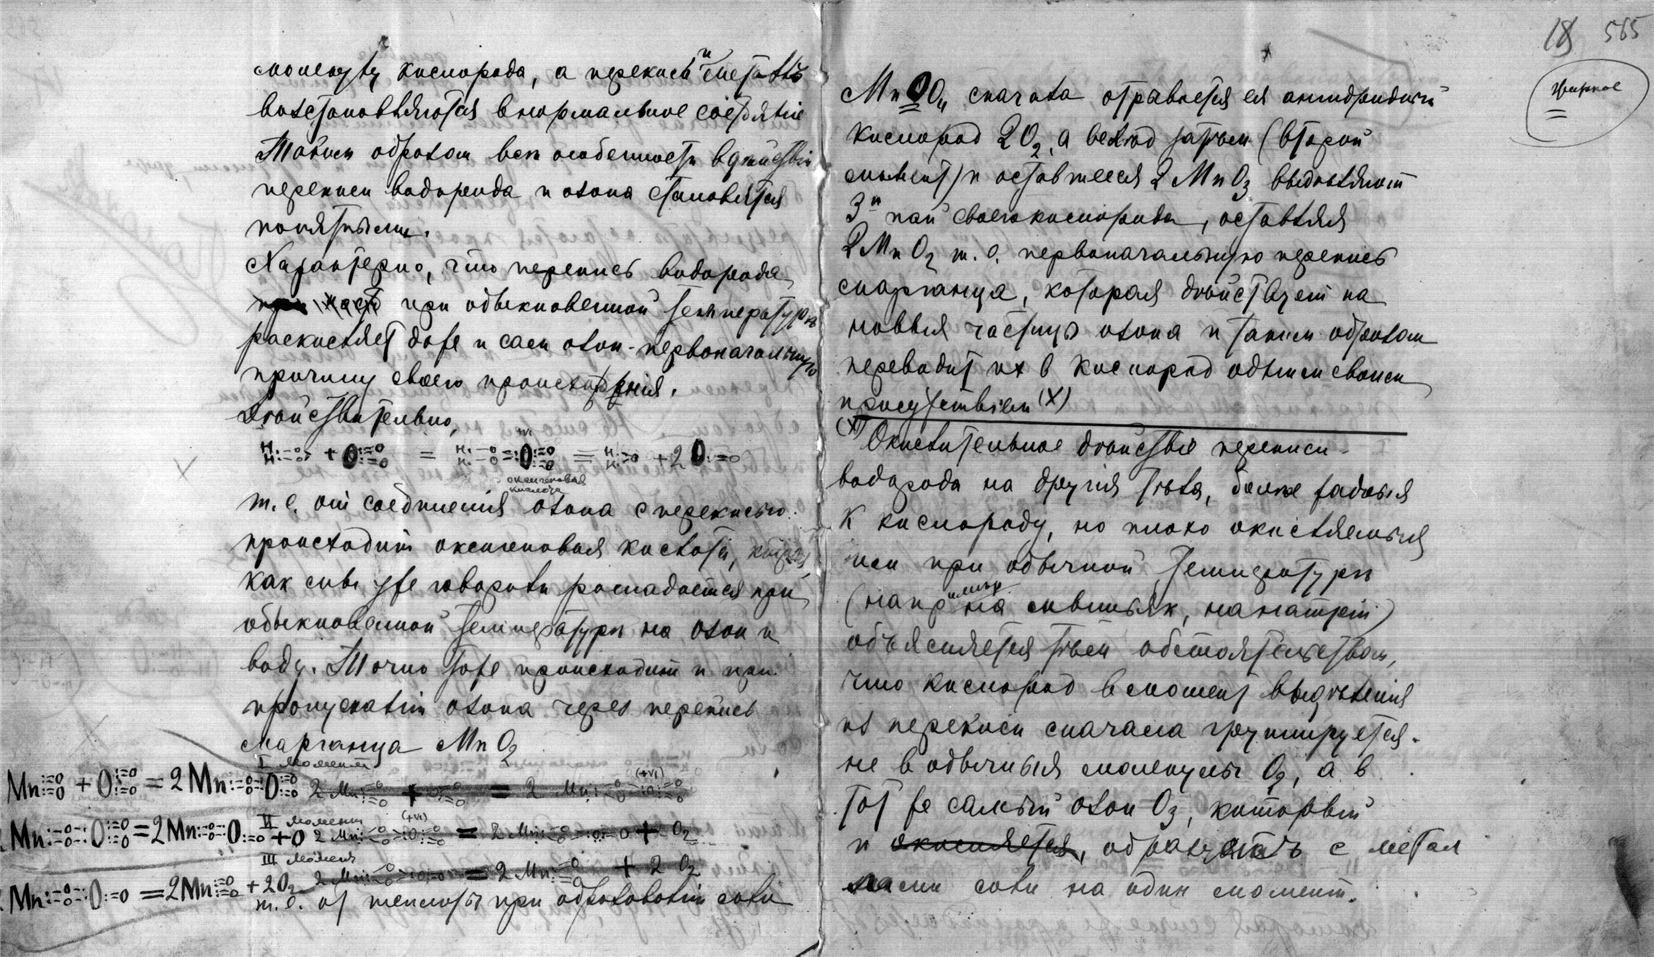 молекулу кислорода, а перекиси и металлъ
возстановляются в нормальное состоянiе
Таким образом все особенности в дѣйствiи
перекиси водорода и озона становятся
понятными.
Характерно, что перекись водорода
при обыкновенной температурѣ
раскисляет даже и сам озон - первоначальную
причину своего происхожденiя.
Дѣйствительно,
оксигеновая
кислота
т. е. от соединенiя озона с перекисью
происходит оксигеновая кислота, которая
как мы уже говорили распадается при
обыкновенной температурѣ на озон и
воду. Точно тоже происходит и при
пропусканiи озона через перекись
марганца MnO2
I момент
II момент
III момент
т. е. от теплоты при образованiи соли
18 565
жирное
MnOO4 сначала отрывается ея ангидридный
кислород 2O2, а вслѣд затѣм (второй
момент) и оставшееся 2MnO3 выдѣляют
3й пай своего кислорода, оставляя
2MnO2 т. е. первоначальную перекись
марганца, которая дѣйствует на
новыя частицы озона и таким образом
переводит их в кислород одним своим
присутствiем (X)
(X) Окислительное дѣйствiе перекиси
водорода на другiя тѣла, болѣе жадныя
к кислороду, но плохо окисляемыя
им при обычной температурѣ
(напримѣр на мышьяк, на натрiй)
объясняется тѣм обстоятельством,
что кислород в момент выдѣленiя
из перекиси сначала группируется
не в обычныя молекулы O2, а в
тот же самый озон O3, который
и окисляется, образуя с метал
лами соли на один момент.